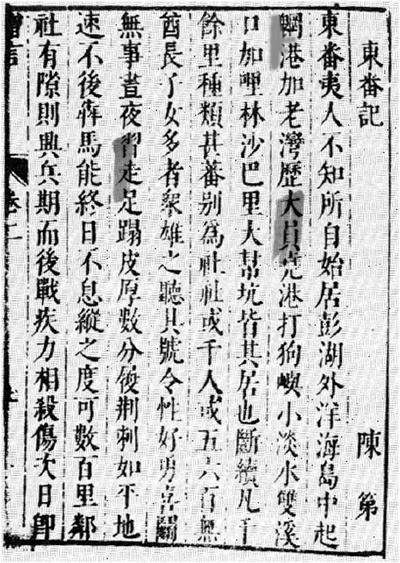 東番記 陳第
東番夷人不知所自始居彭湖外洋海島中起
魍港加老灣歷大員堯港打狗嶼小淡水雙溪
口加哩林沙巴里大幫坑皆其居也斷續凡千
餘里種類甚蕃別為社社或千人或五六百無
酋長子女多者眾雄之聽其號令性好勇喜鬪
無事晝夜習走足蹋皮厚數分履荊刺如平地
速不後犇馬能終日不息縱之度可數百里鄰
社有隙則興兵期而後戰疾力相殺傷次日即
卷二